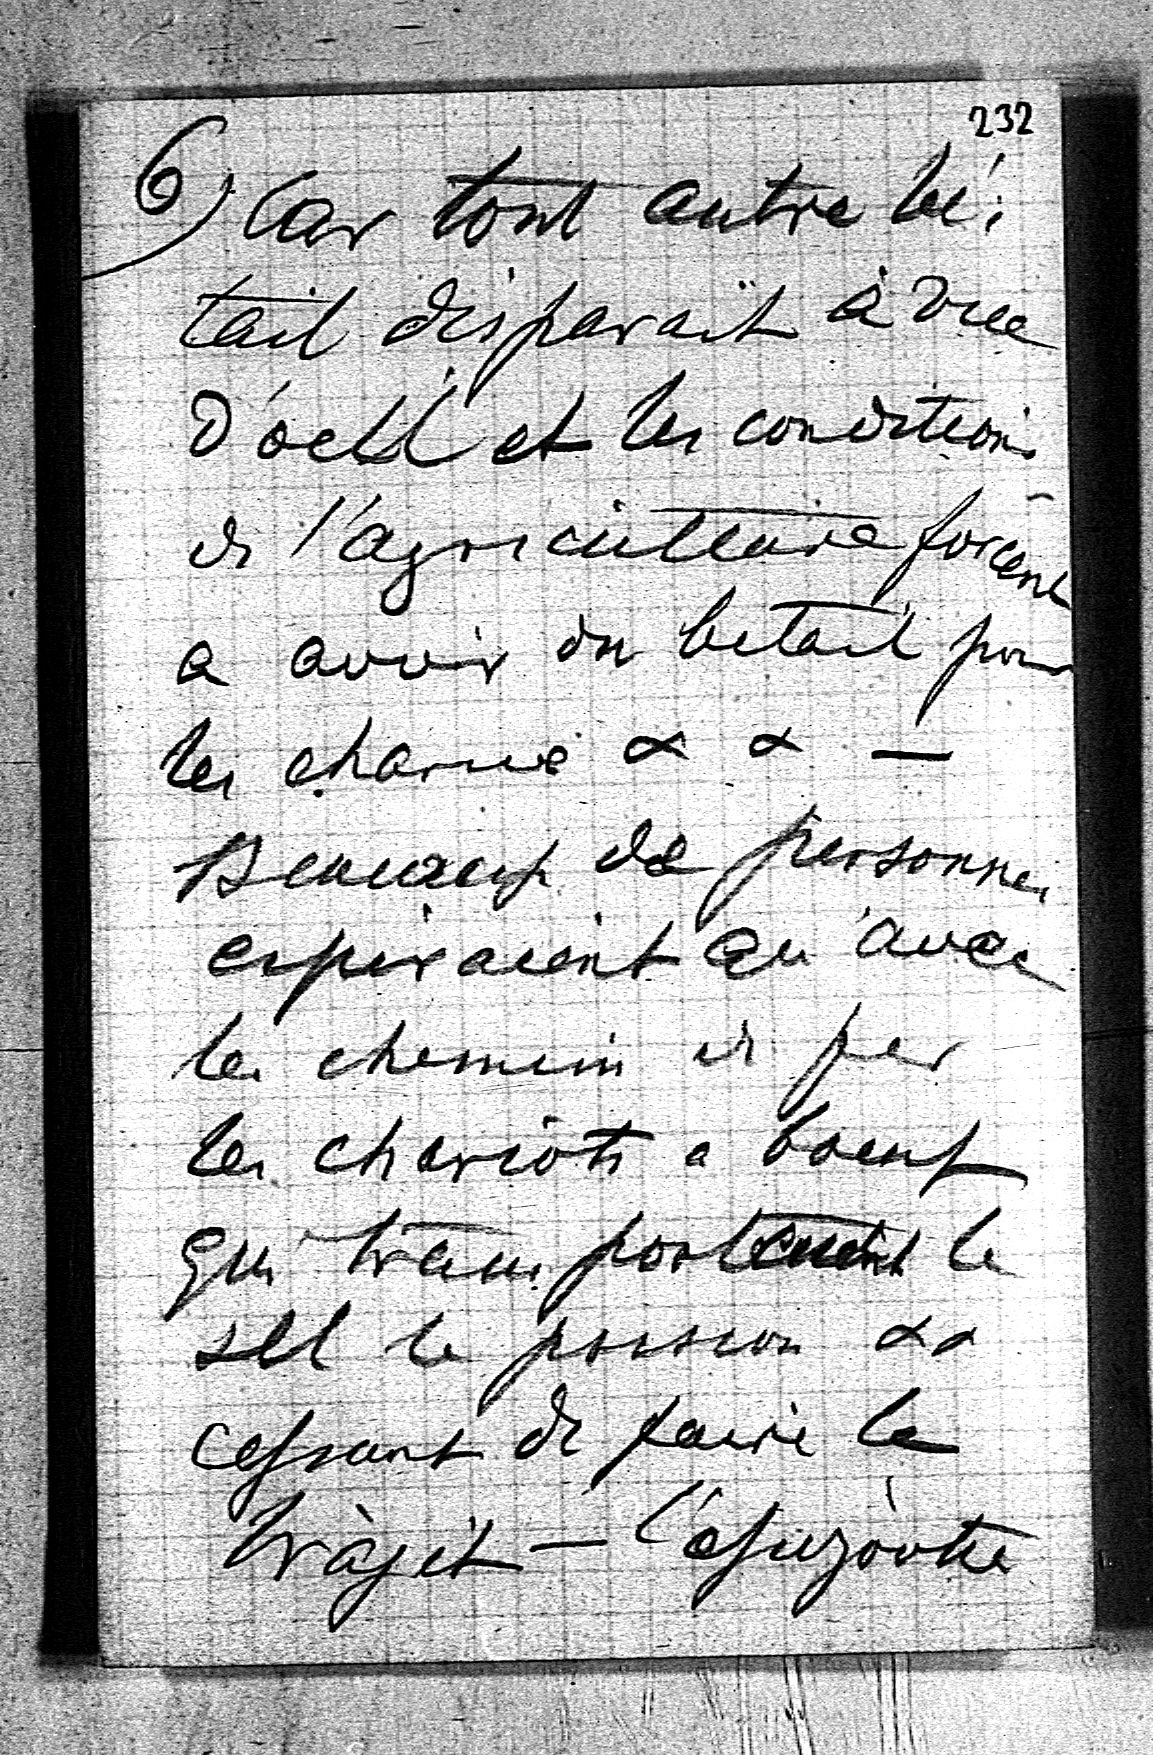 232
6) Car tout autre bé-
tail disparait à vue
d'oeil et les conditions
de l'agriculture forcent
a avoir du betail pour
les charrue & & —
Beaucoup de personnes
espéraient qu'avec
les chemin de fer
les chariots a boeuf
qui transportaient le
sel le poisson &&
cessant de faire le
trajet —